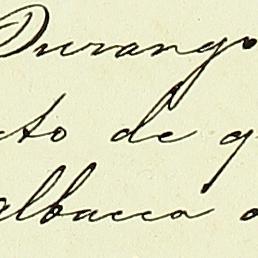 Durango
cto de q
albacea a